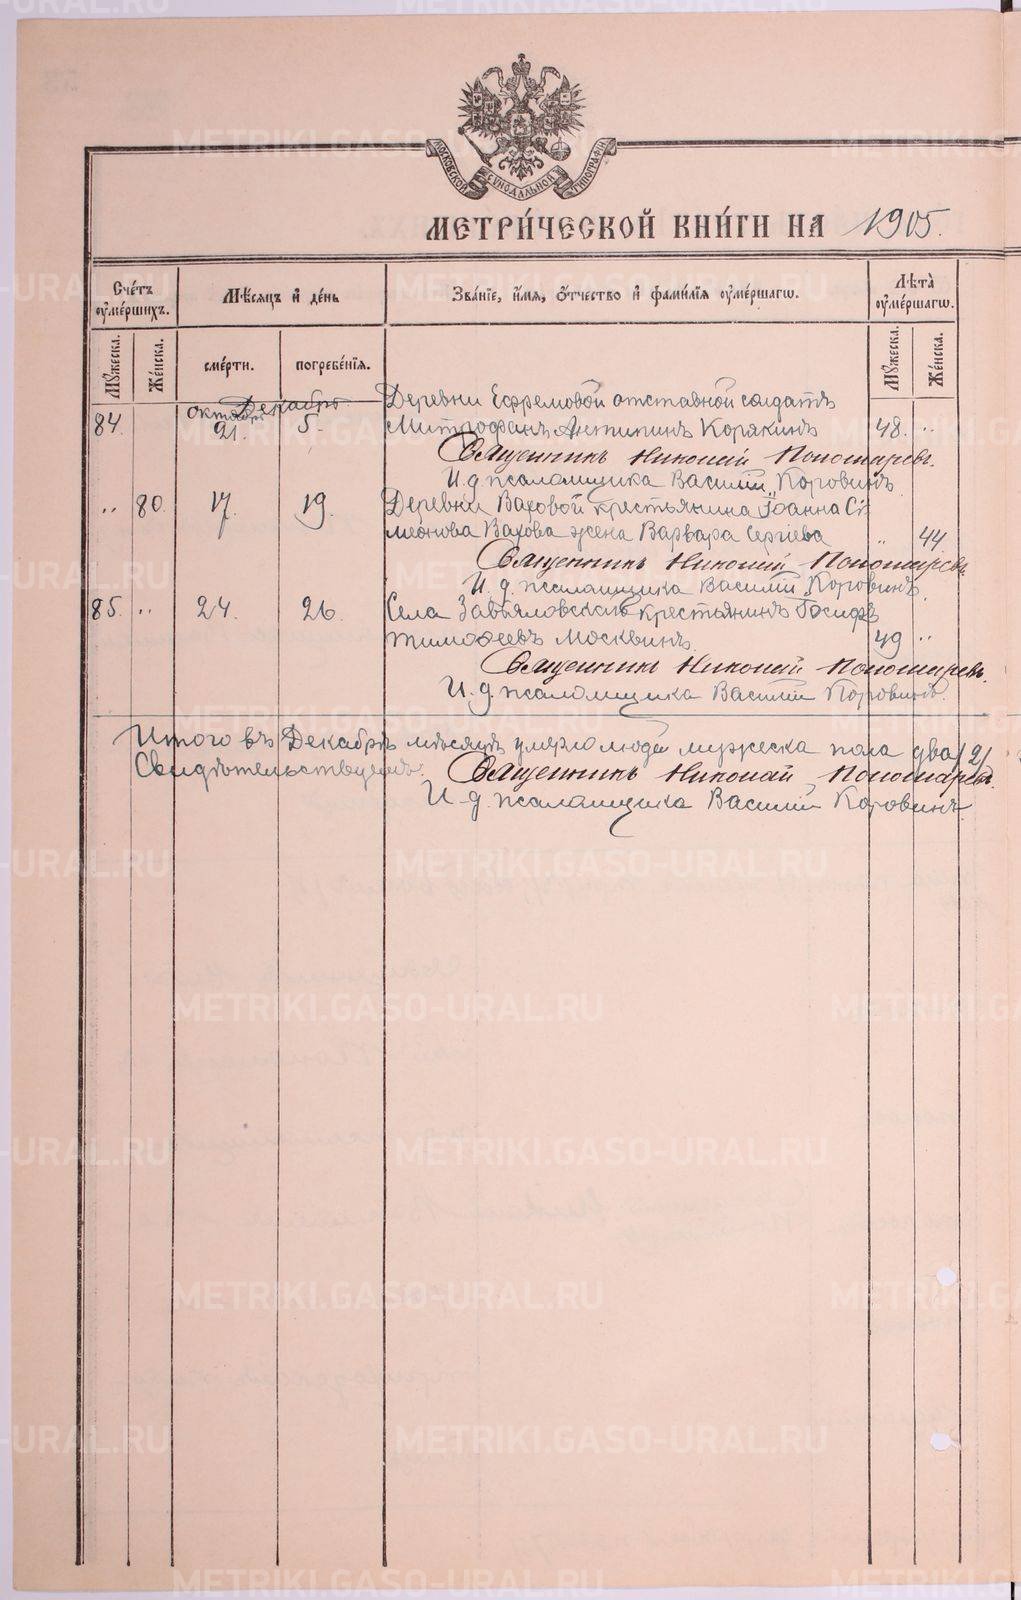 МОСКОВСКОЙ СѴНОДАЛЬНОЙ ТИПОГРАФІИ
МЕТРИ́ЧЕСКОЙ КНИ́ГИ НА 1905.
Сче́тъ оу҆ме́ршихъ.
Мѣ́сяцъ и҆ де́нь
Зва́нїе, и҆́мѧ, ѻ҆́тчество и҆ фами́лїѧ оу҆ме́ршагѡ.
Лѣта̀ оу҆ме́ршагѡ.
Мꙋ́жеска. Же́нска. сме́рти. погребе́нїѧ. Мꙋ́жеска. Же́нска.
октябрь Декабрь Деревни Ефремовой отставной солдатъ
84. 21. 5. Митрофанъ Антипинъ Корякинъ 48. "
Священникъ Николай Пономаревъ.
И. д. псаломщика Василій Коровинъ
" 80. 17. 19. Деревни Ваховой крестьянина Іоанна Си
меонова Вахова жена Варвара Сергіева " 44
Священникъ Николай Пономаревъ.
И. д. псаломщика Василій Коровинъ.
85. " 24. 26. Села Завьяловскаго крестьянинъ Іосифъ
Тимофеевъ Москвинъ. 49 "
Священникъ Николай Пономаревъ.
И. д. псаломщика Василій Коровинъ.
Итого въ Декабрѣ мѣсяцѣ умерло людей мужеска пола два /2/
Свидѣтельствуемъ: Священникъ Николай Пономаревъ.
И. д. псаломщика Василій Коровинъ.
METRIKI.GASO-URAL.RU